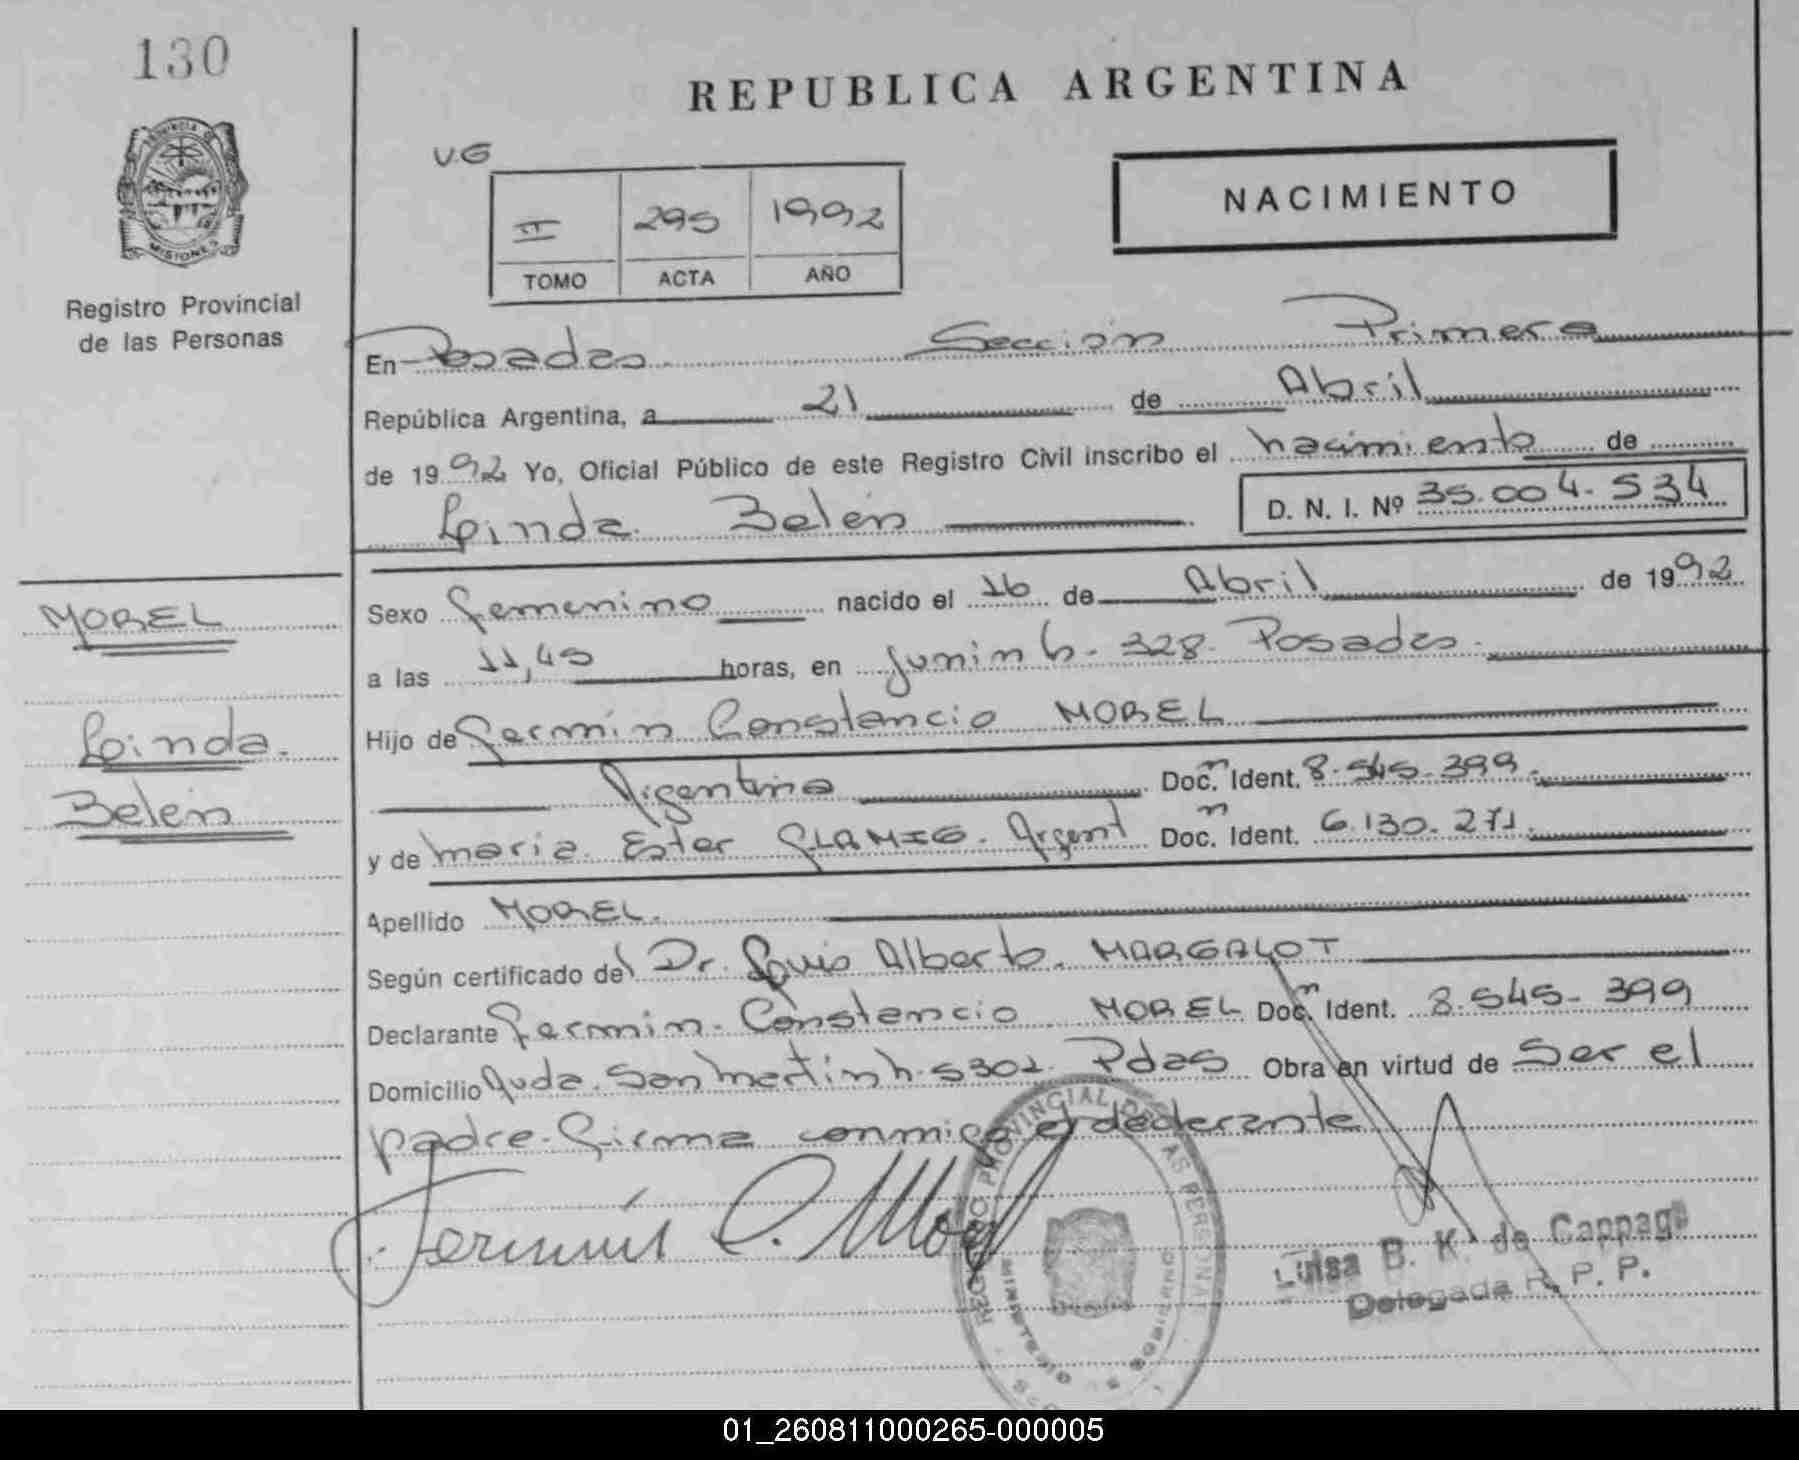 130
REPUBLICA ARGENTINA
PROVINCIA DE
MISIONES
V.G
NACIMIENTO
II 295 1992
TOMO ACTA AÑO
Registro Provincial
de las Personas
En Posadas Sección Primera
República Argentina, a 21 de Abril
de 1992 Yo, Oficial Público de este Registro Civil inscribo el nacimiento de
Linda Belén
D. N. I. Nº 35.004.534
MOREL
Linda.
Belén
Sexo femenino nacido el 16 de Abril de 1992
a las 11,45 horas, en Junin h. 328. Posadas.
Hijo de Fermín Constancio MOREL
Argentino Doc. Ident. 8.545.399.
y de maria Ester FLAMIG. Argent Doc. Ident. 6.130.271.
Apellido MOREL.
Según certificado del Dr. Luis Alberto. MARGALOT
Declarante Fermin. Constancio MOREL Doc. Ident. 8.545.399
Domicilio Avda. San Martin h. 5302. Pdas Obra en virtud de Ser el
padre. firma conmigo el declarante
Fermin C. Morel
REGISTRO PROVINCIAL DE LAS PERSONAS
MINISTERIO
Luisa B. K. de Cappag
Delegada R. P. P.
01_260811000265-000005